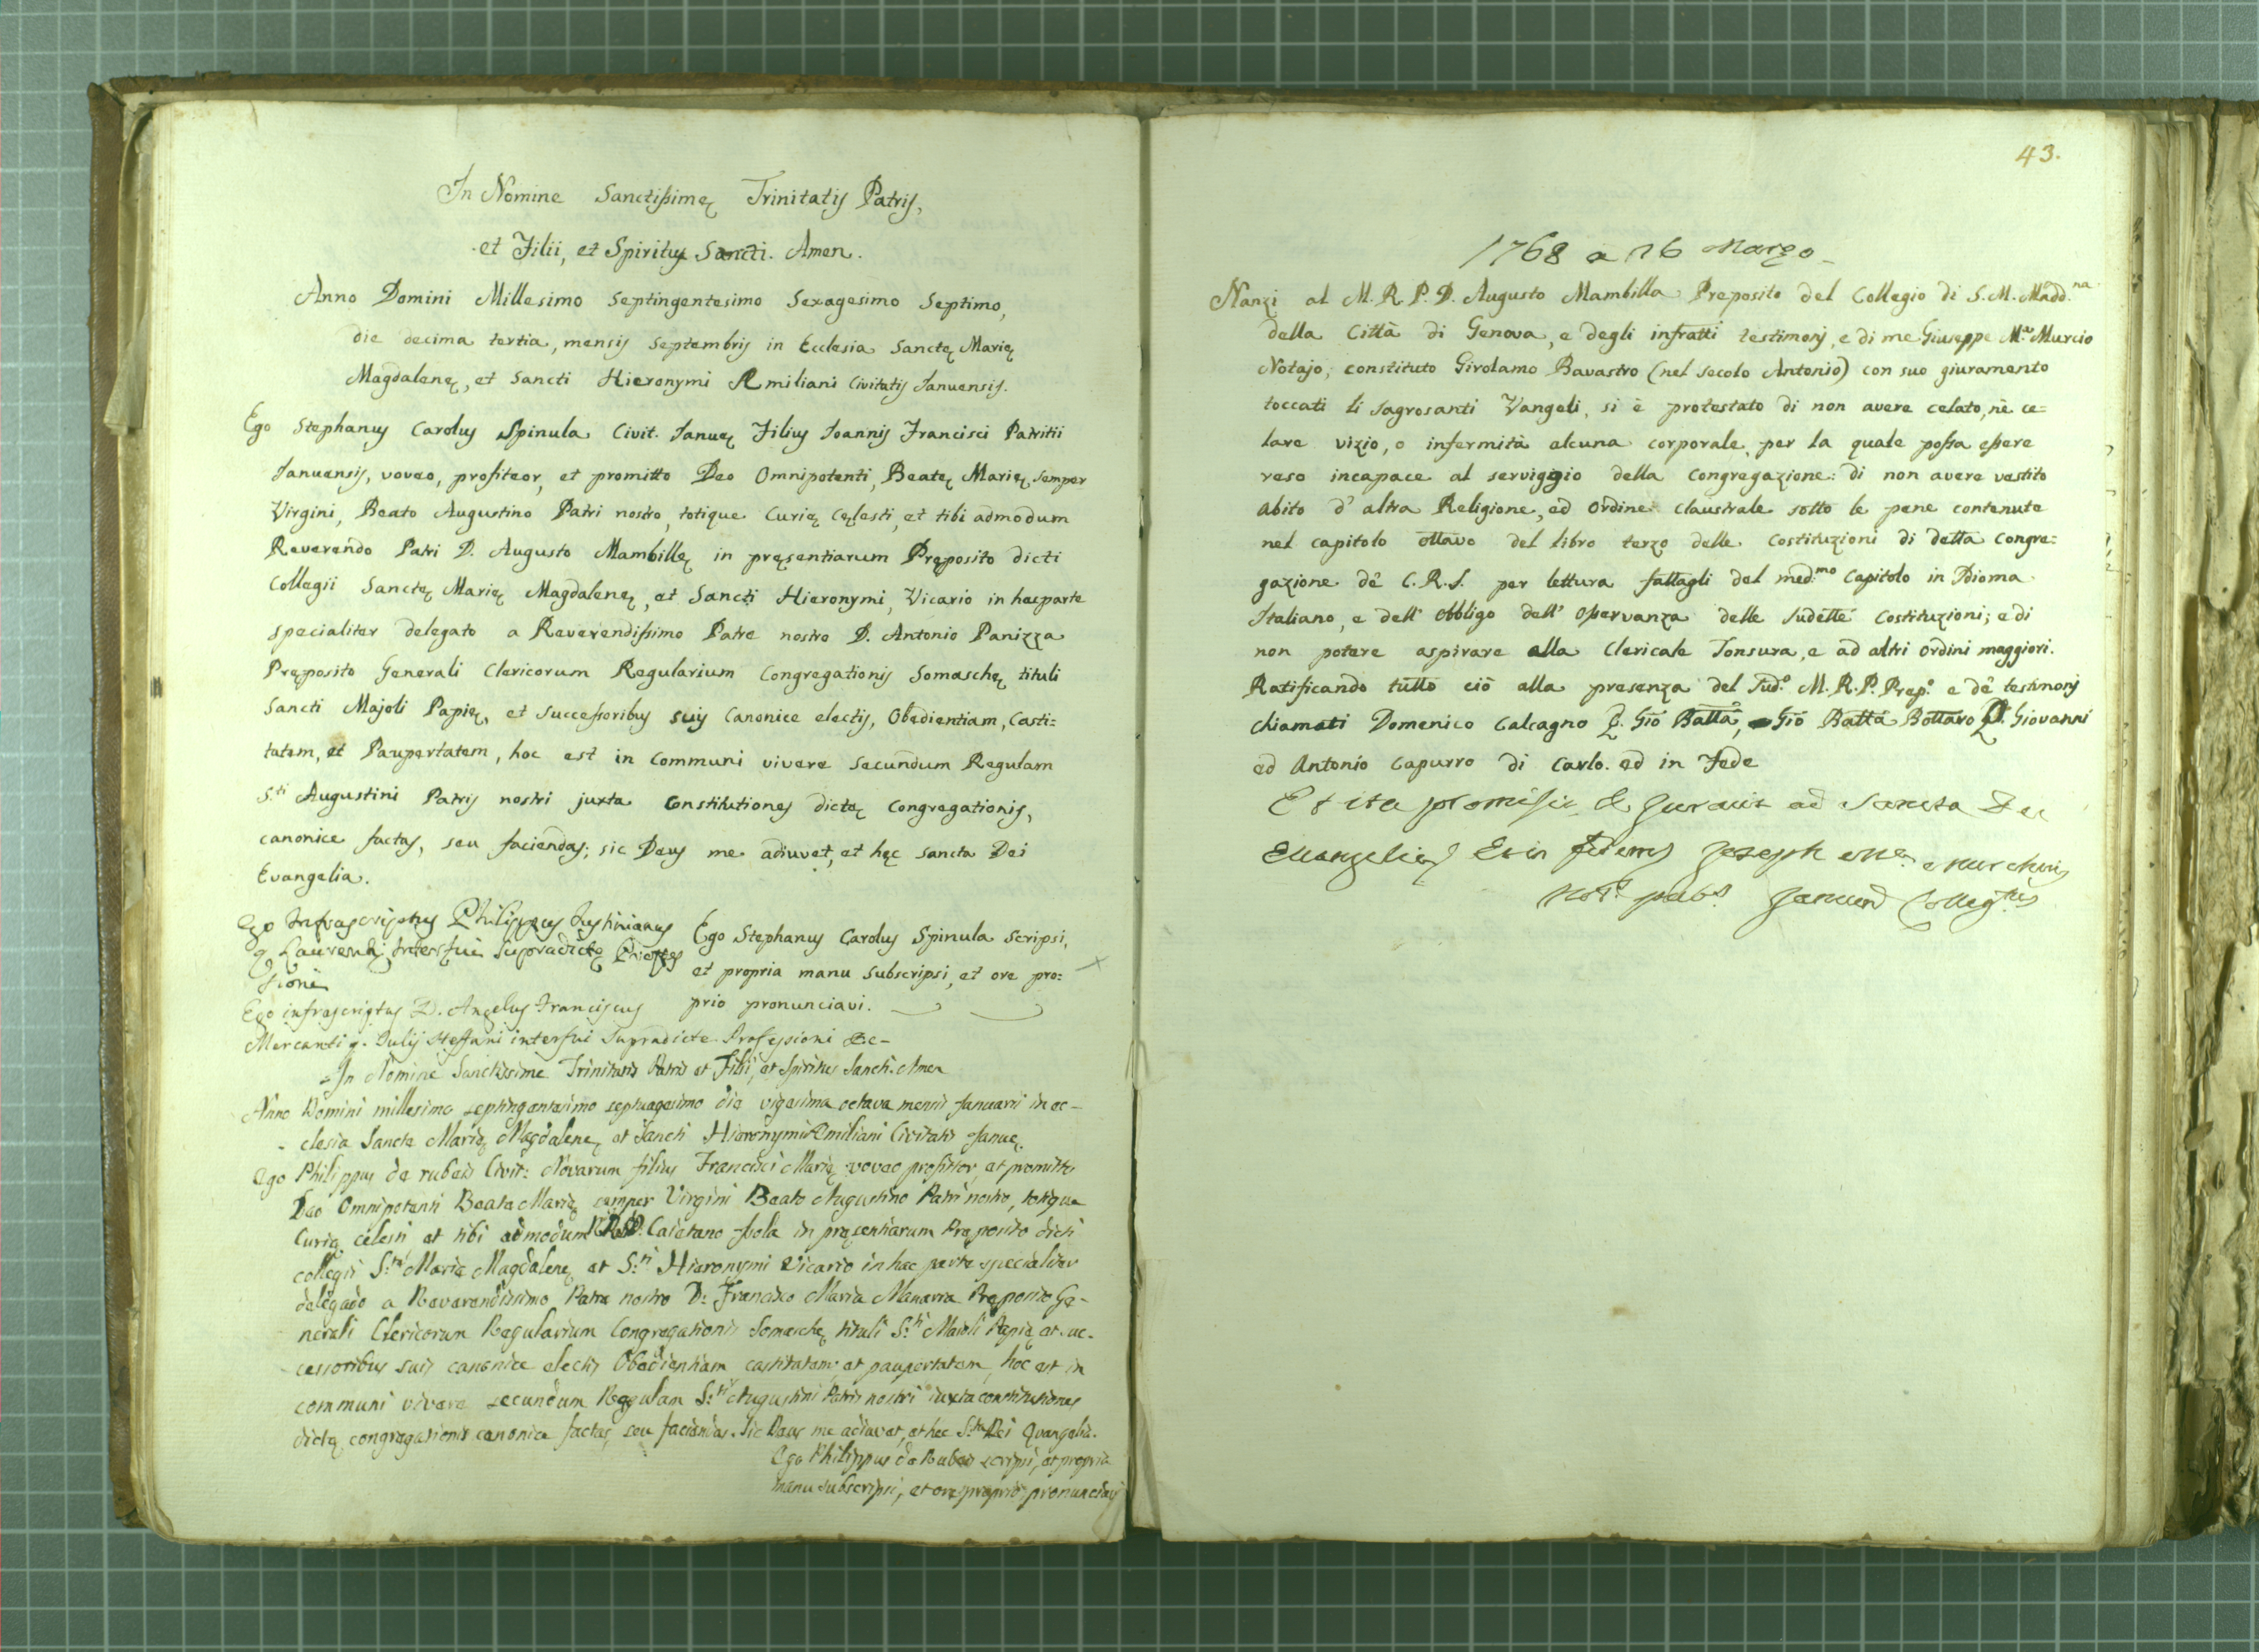 In Nomine Sanctissimę Trinitatis Patris,
et Filii, et Spiritus Sancti. Amen.
Anno Domini Millesimo Septingentesimo Sexagesimo Septimo,
die decima tertia, mensis Septembris in Ecclesia Sanctę Marię
Magdalenę, et Sancti Hieronymi Æmiliani Civitatis Januensis.
Ego Stephanus Carolus Spinula Civit. Januę Filius Joannis Francisci Patritii
Januensis, voveo, profiteor, et promitto Deo Omnipotenti, Beatę Marię semper
Virgini, Beato Augustino Patri nostro, totique Curię Cęlesti, et tibi admodum
Reverendo Patri D. Augusto Mambillę in pręsentiarum Pręposito dicti
Collegii Sanctę Marię Magdalenę, et Sancti Hieronymi, Vicario in hac parte
specialiter delegato a Reverendissimo Patre nostro D. Antonio Panizza
Pręposito Generali Clericorum Regularium Congregationis Somaschę tituli
Sancti Majoli Papię, et successoribus suis Canonice electis, Obedientiam, Casti=
tatem, et Paupertatem, hoc est in Communi vivere secundum Regulam
S.ti Augustini Patris nostri juxta Constitutiones dictę Congregationis,
canonice factas, seu faciendas; sic Deus me adiuvet, et hęc Sancta Dei
Evangelia.
Ego Infrascriptus Philippus Justinianus
q. Laurentii Interfui Supradictę Profes
sioni
Ego Stephanus Carolus Spinula Scripsi,
et propria manu subscripsi, et ore pro=
prio pronunciavi.
Ego infrascriptus D. Angelus Franciscus
Mercanti q. Julij Steffani interfui Supradicte Professioni &c-
In Nomine Sanctissime Trinitatis Patris et Filii, et Spiritus Sancti. Amen
Anno Domini millesimo septingentesimo septuagesimo die vigesima octava mensis Januarii in ec-
clesia Sancte Marię Magdalenę et Sancti Hieronymi Æmiliani Civitatis Januę.
Ego Philippus de rubeis Civit: Novarum filius Francisci Marię voveo profiteor, et promitto
Deo Omnipotenti Beata Marię semper Virgini Beato Augustino Patri nostro, totique
Curię celesti et tibi admodum R.P.D. Caietano Isola in pręsentiarum Pręposito dicti
collegii S.tę Marię Magdalenę et S.ti Hieronymi Vicario in hac parte specialiter
delegado a Reverendissimo Patre nostro D: Francisco Maria Manara Preposito Ge-
nerali Clericorum Regularium Congregationis Somaschę tituli S.ti Maioli Papię et suc-
cessoribus suis canonice electis Obedientiam castitatem, et paupertatem, hoc est in
communi vivere secundum Regulam S.ti Augustini Patris nostri iuxta constitutiones
dictę congregationis canonice factas, seu faciendas. Sic Deus me adiuvet, et hec S.ta Dei Evangelia.
Ego Philippus de Rubeis scripsi, et propria
manu subscripsi, et ore proprio pronunciavi
43.
1768 a 26 Marzo
Nanzi al M. R. P. D. Augusto Mambilla Preposito del Collegio di S. M. Madd.na
della Città di Genova, e degli infratti testimonj, e di me Giuseppe M.a Murcio
Notajo; constituto Girolamo Bavastro (nel secolo Antonio) con suo giuramento
toccati li sagrosanti Vangeli, si è protestato di non avere celato, nè ce=
lare vizio, o infermità alcuna corporale per la quale possa essere
reso incapace al serviggio della Congregazione: di non avere vestito
abito d' altra Religione, ed Ordine claustrale sotto le pene contenute
nel capitolo ottavo del libro terzo delle Costituzioni di detta Congre=
gazione de' C. R. S. per lettura fattagli del med.mo Capitolo in Idioma
Italiano, e dell' obbligo dell' osservanza delle sudette Costituzioni; e di
non potere aspirare alla Clericale Tonsura, e ad altri ordini maggiori.
Ratificando tutto ciò alla presenza del sud.o M. R. P. Prep.o e de' testimonj
chiamati Domenico Calcagno q. Gio Batta, Gio Batta Bottaro q. Giovanni
ed Antonio Capurro di Carlo. ed in Fede
Et ita promisit, & Juravit ad Sancta Dei
Evangelia, Et in fidem Joseph M.a Murchius
Not.s pub.s Collegtus